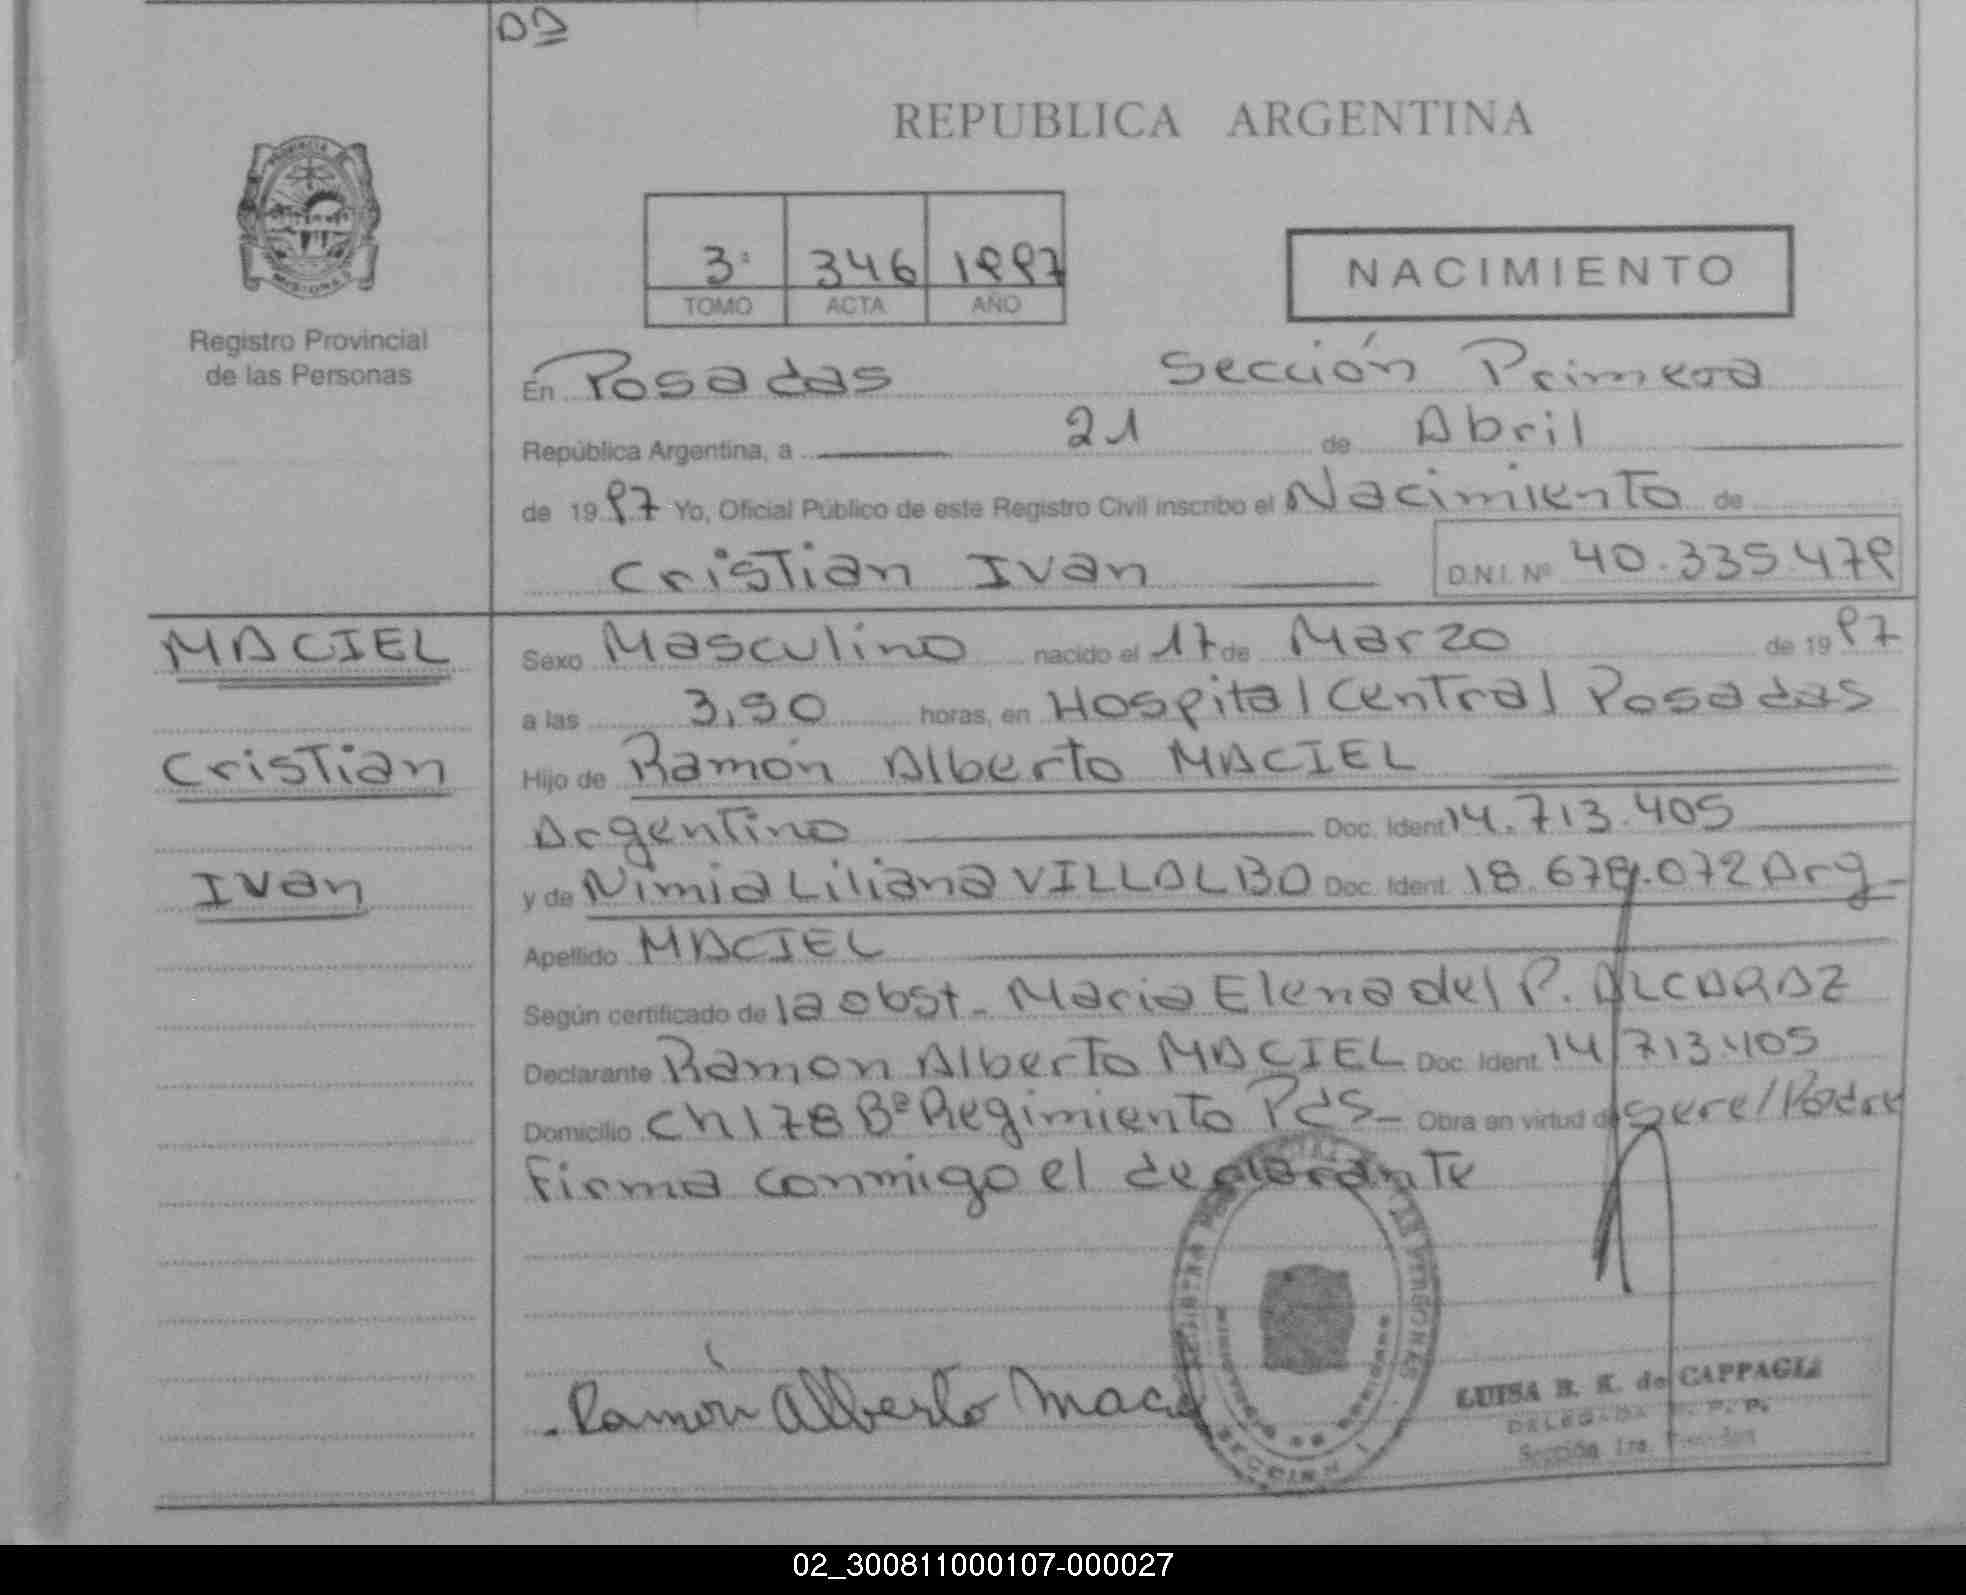 DD
REPUBLICA ARGENTINA
3º 346 1997
TOMO ACTA AÑO
NACIMIENTO
Registro Provincial
de las Personas
En Posadas Sección Primera
República Argentina, a 21 de Abril
de 1997 Yo, Oficial Público de este Registro Civil inscribo el Nacimiento de
Cristian Ivan D.N.I. Nº 40.335.479
MACIEL
Cristian
Ivan
Sexo Masculino nacido el 17 de Marzo de 1997
a las 3,50 horas, en Hospital Central Posadas
Hijo de Ramón Alberto MACIEL
Argentino Doc. Ident. 14.713.405
y de Nimia Liliana VILLALBA Doc. Ident. 18.679.072 Arg-
Apellido MACIEL
Según certificado de la obst. Maria Elena del P. ALCARAZ
Declarante Ramon Alberto MACIEL Doc. Ident. 14.713.405
Domicilio Ch 178 Bº Regimiento Pdas- Obra en virtud de Padre
Firma conmigo el declarante
Ramón Alberto Maciel
SECCION 1
LUISA B. K. de CAPPAGLI
DELEGADA R. P. P.
Sección 1ra. Posadas
02_300811000107-000027